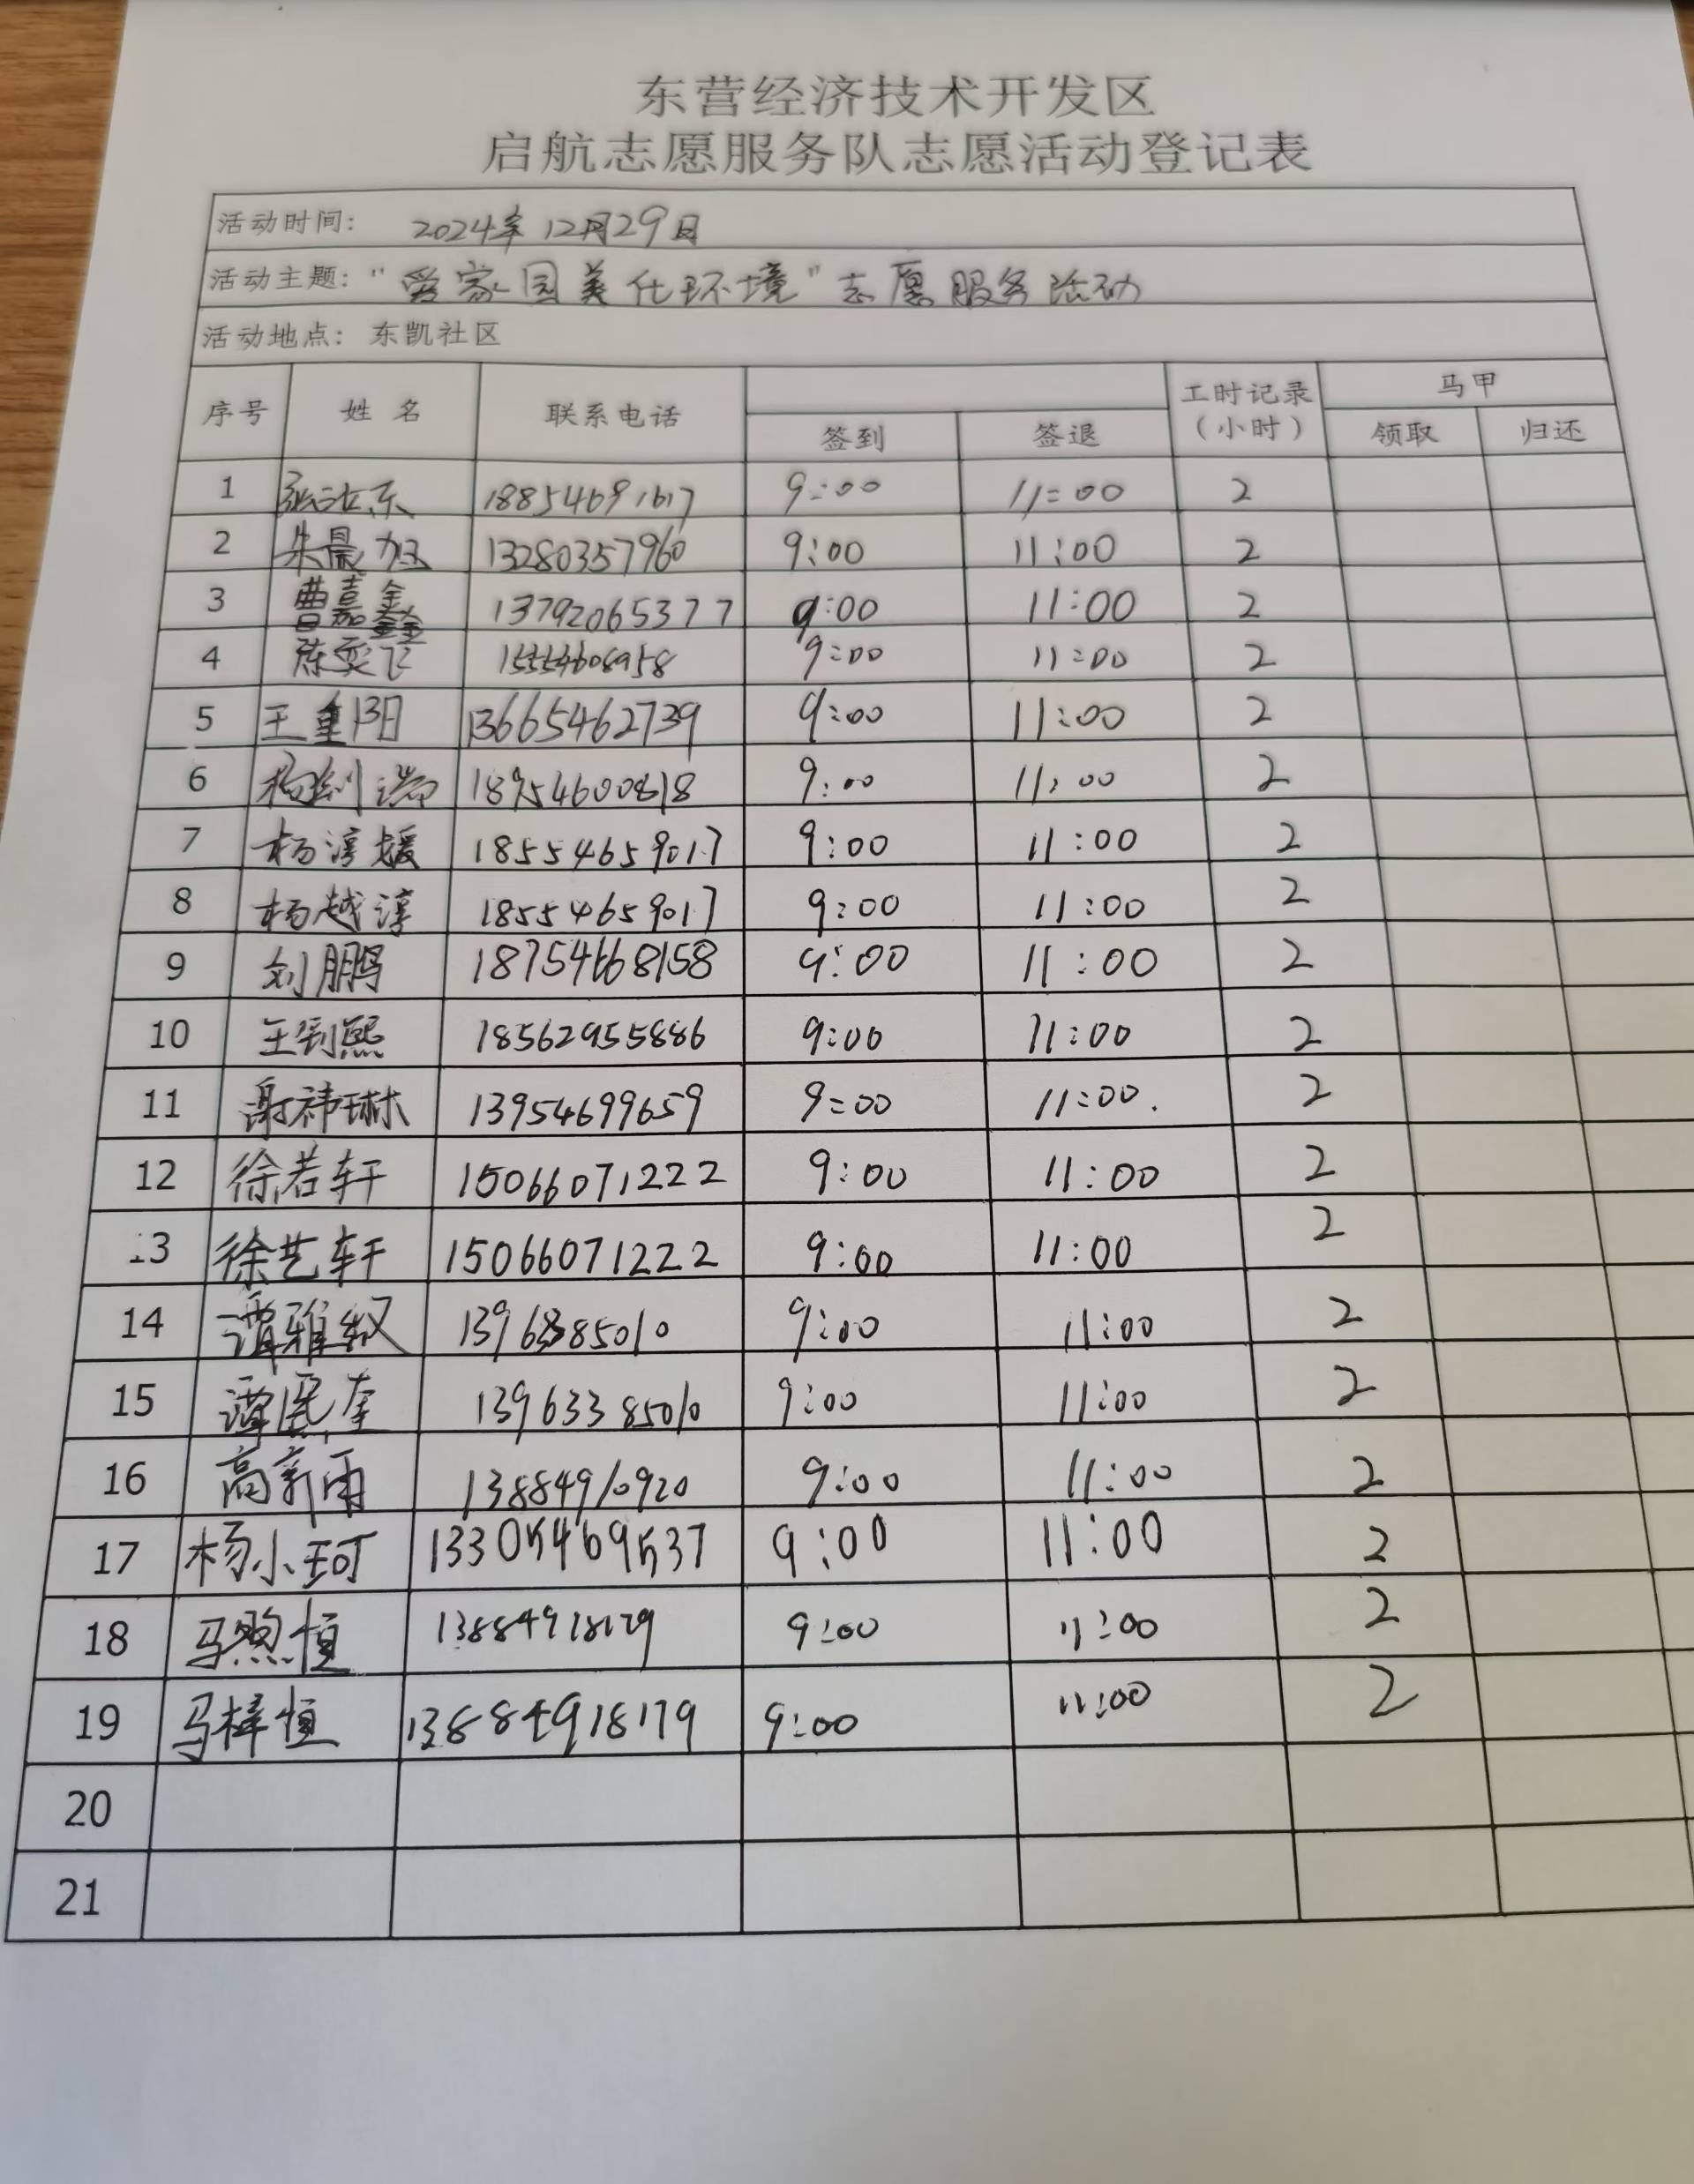 东营经济技术开发区
启航志愿服务队志愿活动登记表
活动时间： 2024年12月29日
活动主题："爱家园美化环境"志愿服务活动
活动地点：东凯社区
序号 姓名 联系电话 签到 签退 工时记录（小时） 马甲 领取 归还
1 18854691617 9:00 11:00 2
2 朱晨旭 13280357960 9:00 11:00 2
3 曹嘉鑫 13792065377 9:00 11:00 2
4 陈奕飞 15554608958 9:00 11:00 2
5 王重阳 13665462739 9:00 11:00 2
6 18954600818 9:00 11:00 2
7 杨淳媛 18554659017 9:00 11:00 2
8 杨越淳 18554659017 9:00 11:00 2
9 刘鹏 18754668158 9:00 11:00 2
10 18562955886 9:00 11:00 2
11 谢祎琳 13954699659 9:00 11:00. 2
12 徐若轩 15066071222 9:00 11:00 2
13 徐艺轩 15066071222 9:00 11:00 2
14 谭雅 9:00 11:00 2
15 13963385010 9:00 11:00 2
16 高新雨 13884910920 9:00 11:00 2
17 杨小珂 13305469537 9:00 11:00 2
18 马煦恒 13884918179 9:00 11:00 2
19 马梓恒 13884918179 9:00 11:00 2
20
21